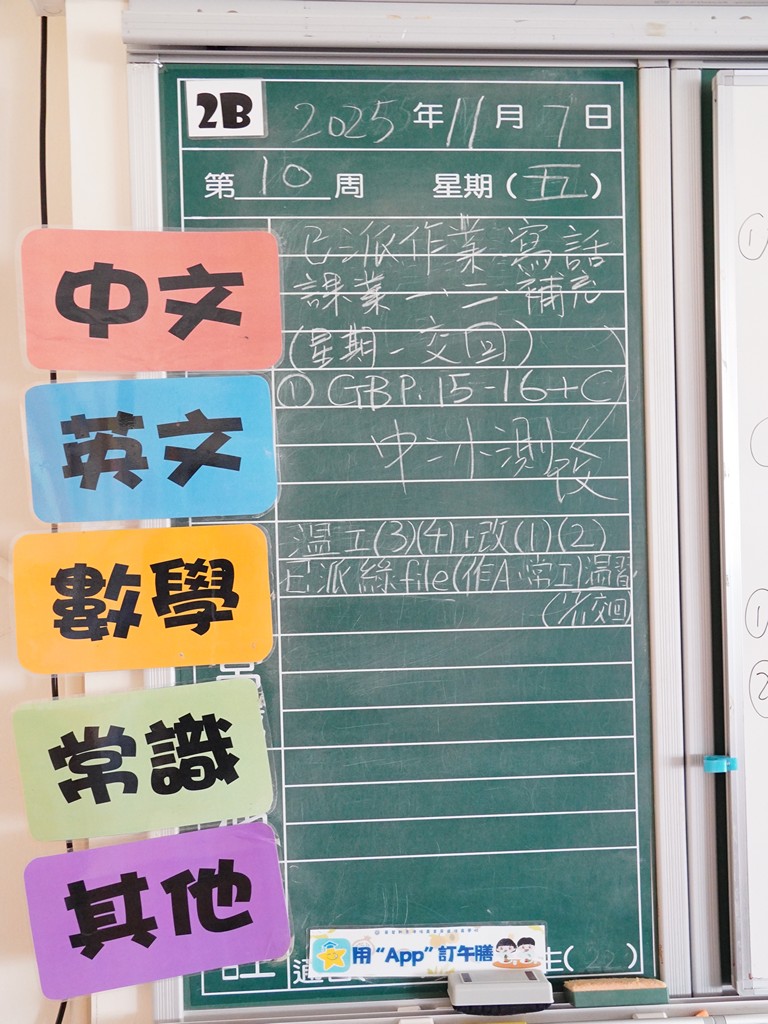 2B 2025年11月7日
第10周 星期(五)
中文
已派作業 寫話
課業一、二、補充
(星期一交回)
英文
① GBP.15-16+C
中二小測改
數學
溫工(3)(4)+改(1)(2)
已派綠file(作A、常工)溫習
交回
常識
其他
用“App”訂午膳
生( 22 )
①
①
②